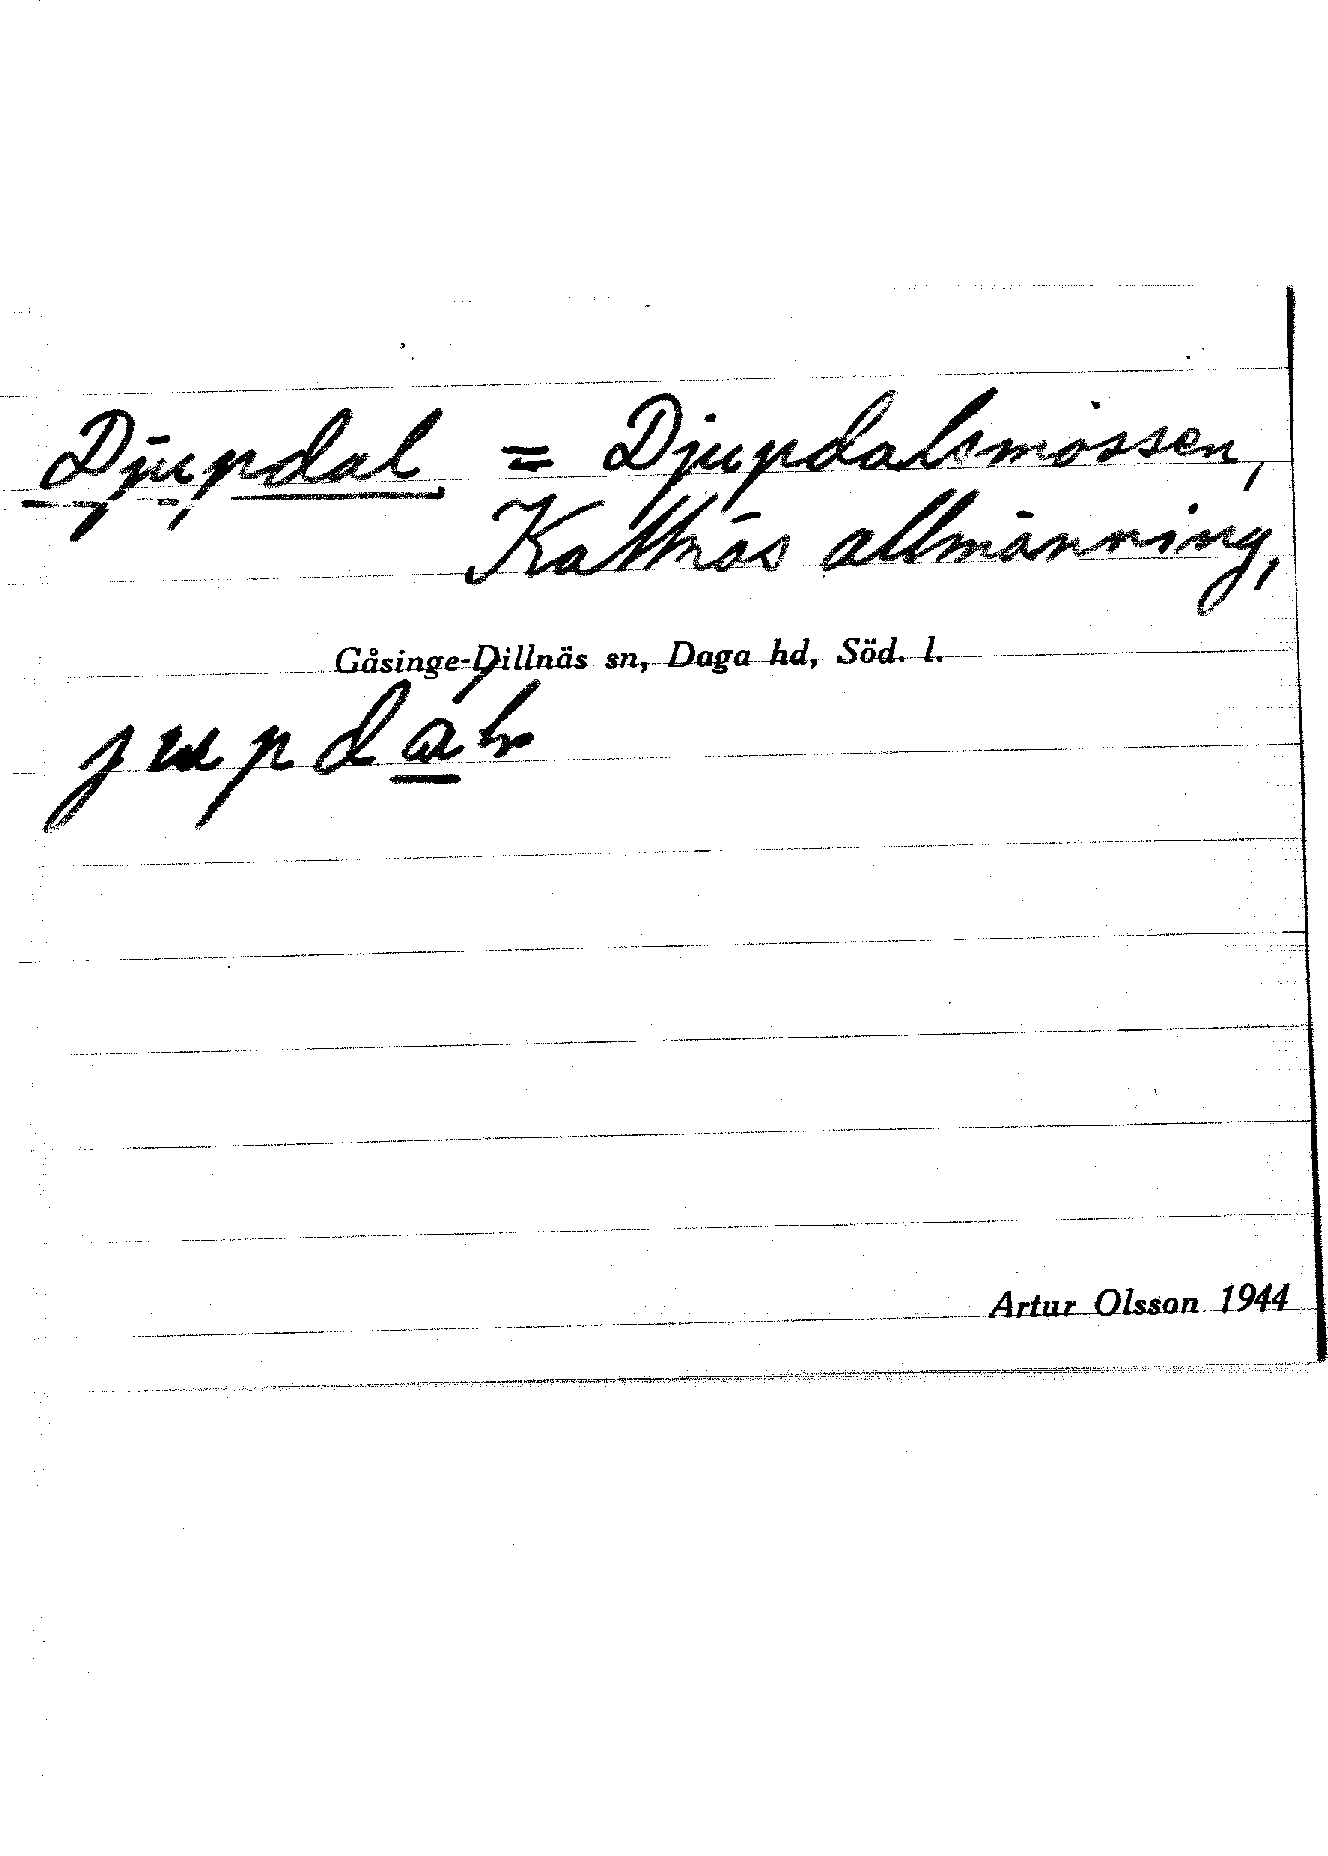 Djupdal = Djupdalsmossen,
Kattnäs allmänning,
Gåsinge-Dillnäs sn, Daga hd, Söd. l.
Artur Olsson 1944